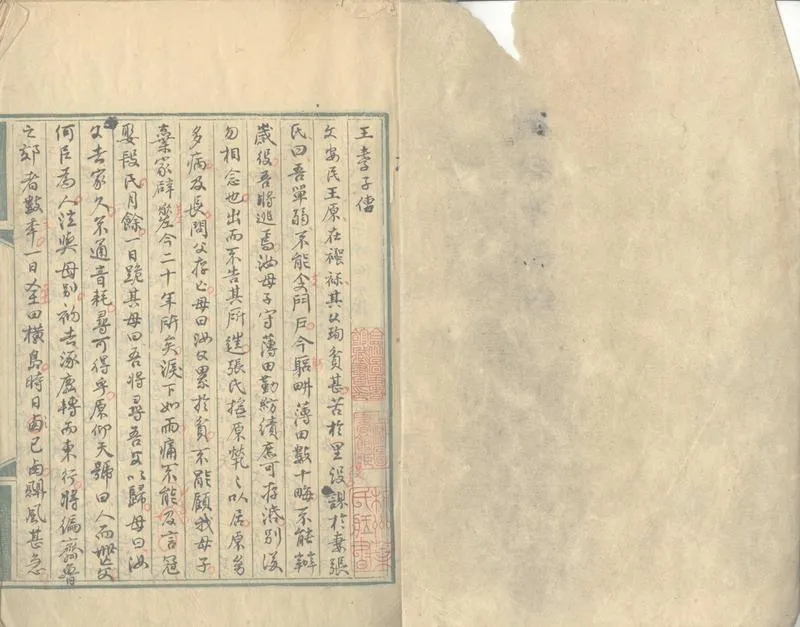 王孝子傳
文安民王原在襁褓其父珣貧甚苦於里役謀於妻張
氏曰吾單弱不能支門戶今軀畊薄田數十畝不能辦
歲役吾將逃焉汝母子守薄田勤紡績庶可存濟別後
勿相念也出而不告其所遂張氏撫原煢〻以居原兒
多病及長問父存亡母曰汝父累於貧不能顧我母子
棄家辟差今二十年所矣淚下如雨痛不能及言冠
娶段氏月餘一日跪其母曰吾將尋吾父以歸母曰汝
父去家久不通音耗尋可得乎原仰天號曰人而無父
何臣為人泣與母別初去涿鹿轉而東行將徧齊魯
之郊者數年一日至田橫島時日西已西颶風甚急